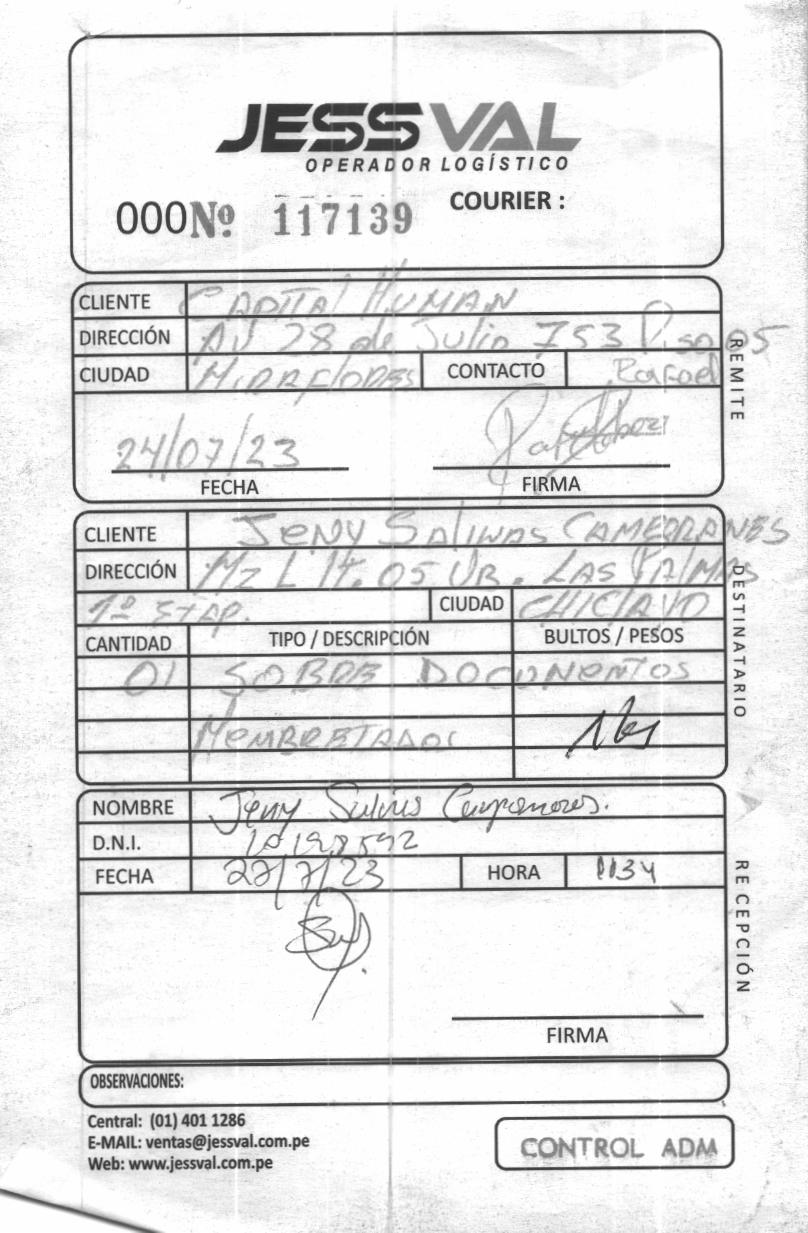 JESSVAL
OPERADOR LOGÍSTICO
000 Nº 117139 COURIER :
CLIENTE CAPITAL HUMAN
DIRECCIÓN AV 28 de Julio 753 Piso 05
CIUDAD MIRAFLORES CONTACTO Rafael
REMITE
24/07/23
FECHA FIRMA
CLIENTE JENY SALINAS
DIRECCIÓN MZ L lt. 05 UR. LAS PALMAS
1º ETAP. CIUDAD CHICLAYO
CANTIDAD TIPO / DESCRIPCIÓN BULTOS / PESOS
01 SOBRE DOCUMENTOS
MEMBRETADOS
DESTINATARIO
NOMBRE Jeny
D.N.I.
FECHA 27/7/23 HORA 1134
RECEPCIÓN
FIRMA
OBSERVACIONES:
Central: (01) 401 1286
E-MAIL: ventas@jessval.com.pe
Web: www.jessval.com.pe
CONTROL ADM